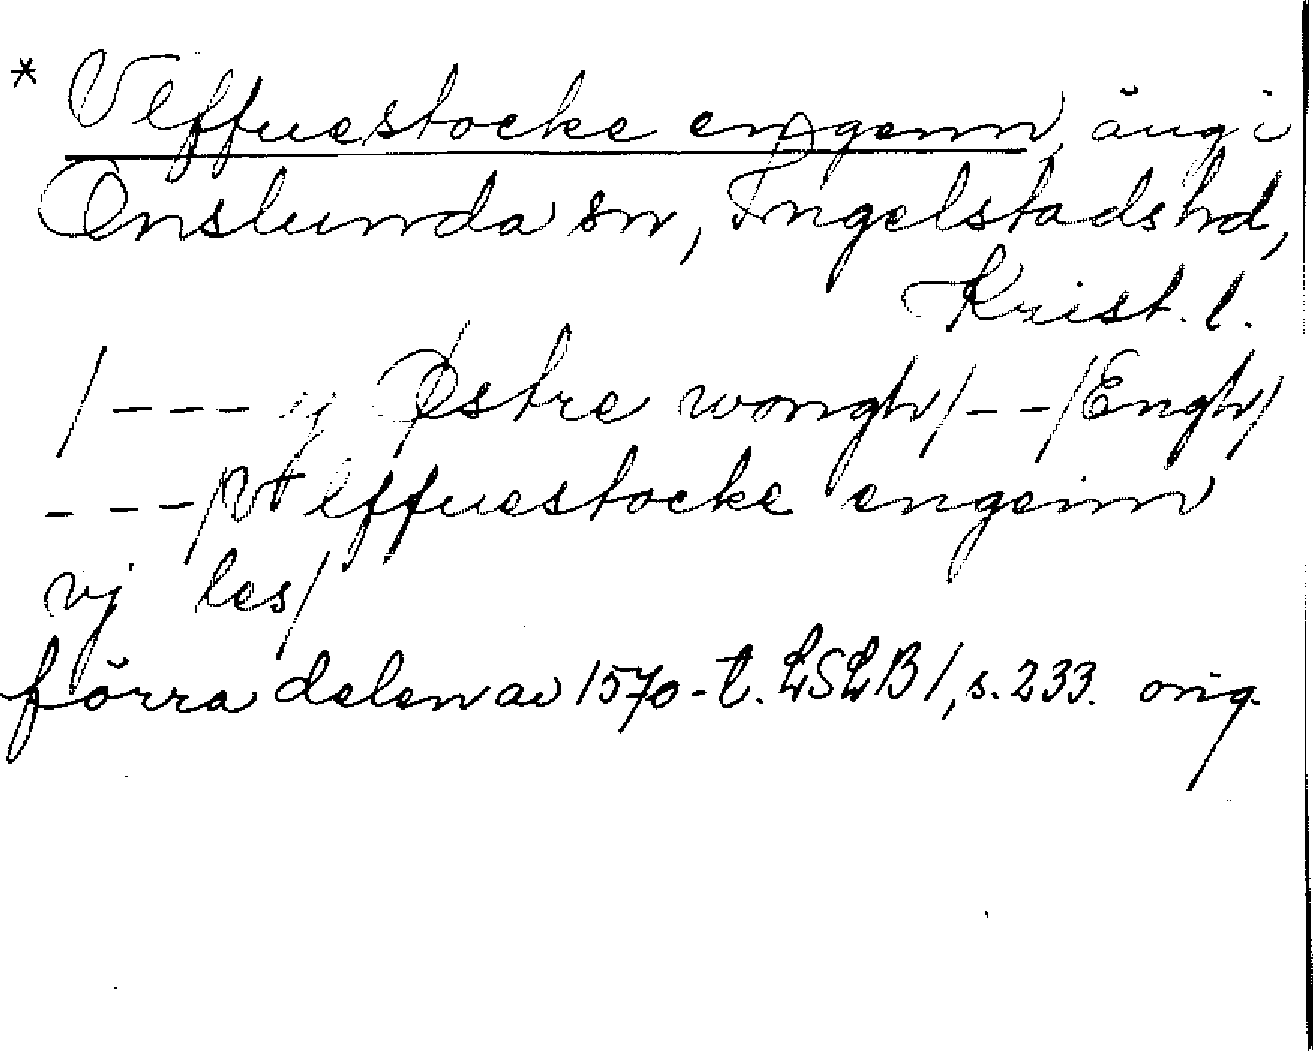 * Vlffuestocke engenn, äng i
Onslunda sn, Ingelstads hd,
Krist. l.
/--- y Østre wongh/--/Engh/
---/Vlffuestocke engenn
vj les/
förra delen av 1570-t. LSLB 1, s. 233. orig.